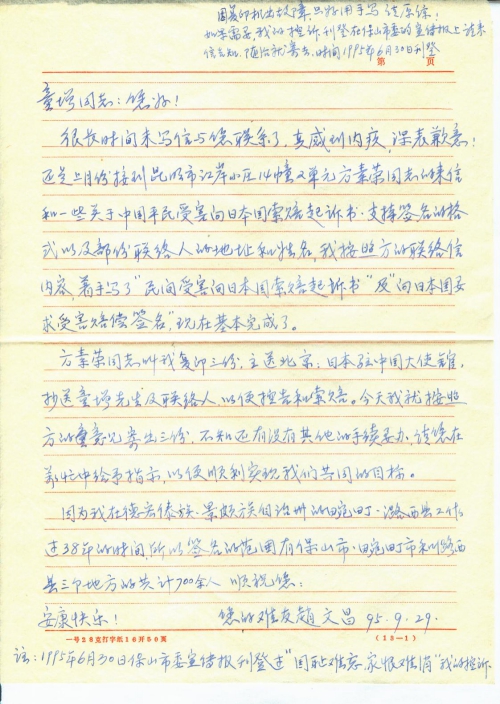 因复印机出故障,只好用手写 请原谅!
如果需要,我的控诉刊登在保山市委的宣传报上 请来
信告知,随信就寄去.时间1995年6月30日刊登
第 页
童增同志:您好!
很长时间未写信与您联系了,真感到内疚,深表歉意!
还是上月份接到昆明市江岸小区14幢2单元方素荣同志的来信
和一些关于中国平民受害向日本国索赔起诉书.支持签名的格
式以及部份联络人的地址和姓名,我按照方的联络信
内容,着手写了"民间受害向日本国索赔起诉书"及"向日本国要
求受害赔偿签名",现在基本完成了。
方素荣同志叫我复印三份,主送北京:日本驻中国大使馆,
抄送童增先生及联络人 以便控告和索赔。今天我就按照
方的意见寄出三份,不知还有没有其他的手续要办,请您在
百忙中给予指示,以便顺利实现我们共同的目标。
因为我在德宏傣族.景颇族自治州的畹町.潞西县工作
达38年的时间,所以签名的范围有保山市.畹町市和潞西
县三个地方的共计700余人 顺祝您:
安康快乐! 您的难友赵文昌 95.9.29.
一号28克打字纸16开50页 (13-1)
註:1995年6月30日保山市委宣传报刊登过"国耻难忘.家恨难消"我的控诉.